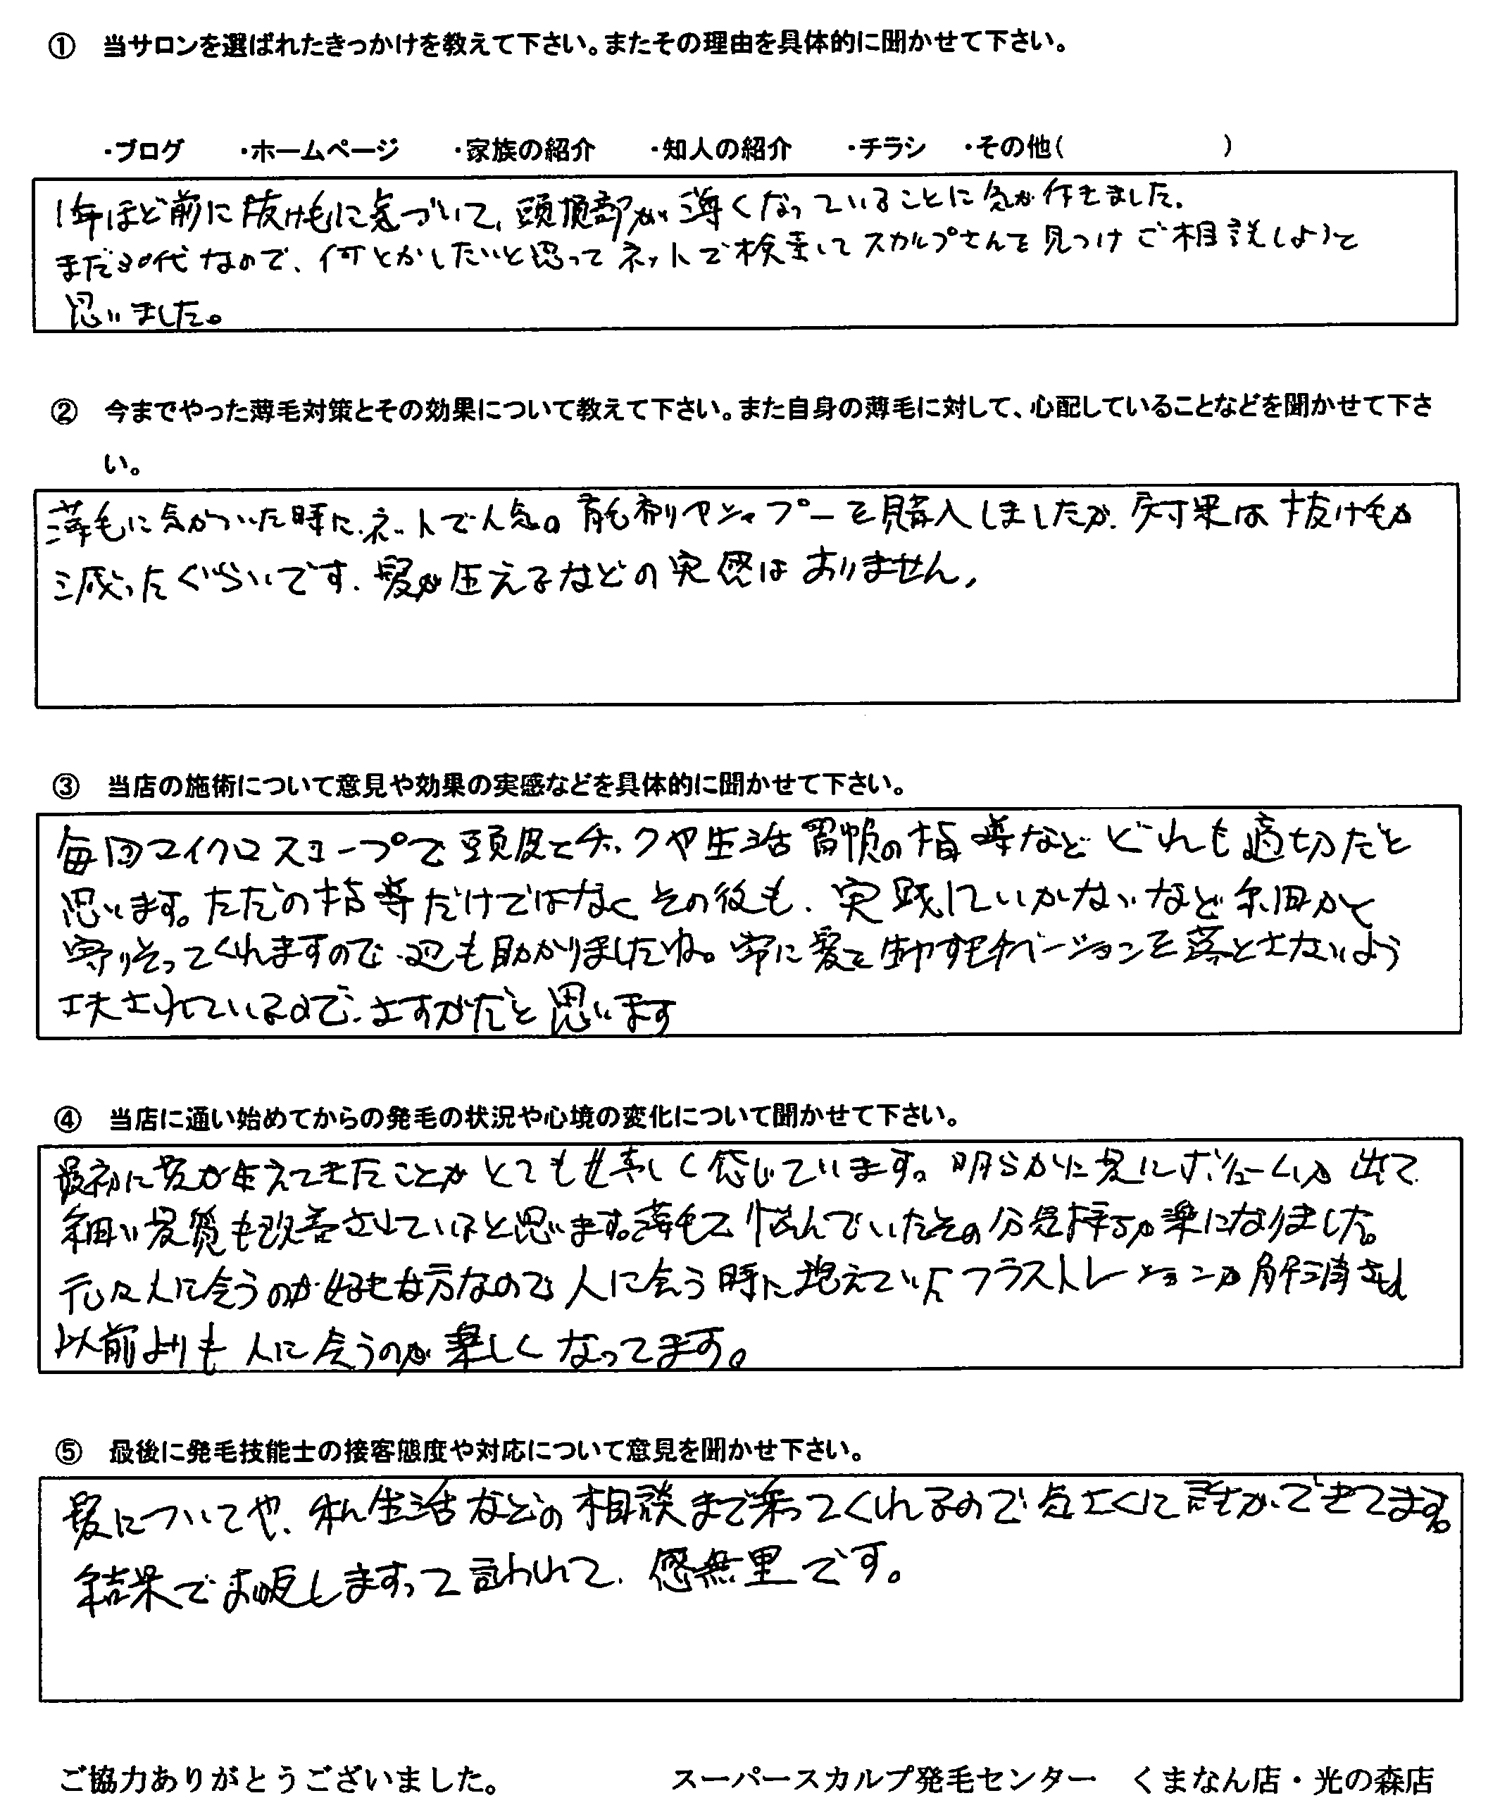 ① 当サロンを選ばれたきっかけを教えて下さい。またその理由を具体的に聞かせて下さい。
・ブログ ・ホームページ ・家族の紹介 ・知人の紹介 ・チラシ ・その他( )
1年ほど前に抜け毛に気づいて、頭頂部が薄くなっていることに気が付きました。
まだ30代なので、何とかしたいと思ってネットで検索してスカルプさんを見つけご相談しようと
思いました。
② 今までやった薄毛対策とその効果について教えて下さい。また自身の薄毛に対して、心配していることなどを聞かせて下さ
い。
薄毛に気がついた時に、ネットで人気の育毛剤やシャンプーを購入しましたが、効果は抜け毛が
減ったぐらいです。髪が生えるなどの実感はありません。
③ 当店の施術について意見や効果の実感などを具体的に聞かせて下さい。
毎回マイクロスコープで頭皮チェックや生活習慣の指導などどれも適切だと
思います。ただの指導だけではなくその後も、実践していかないなど細かく
寄りそってくれますので、迚も助かりましたね。常に髪を生やすモチベーションを落とさないよう
工夫されているので、さすがだと思います
④ 当店に通い始めてからの発毛の状況や心境の変化について聞かせて下さい。
最初に髪が生えてきたことがとても嬉しく感じています。明らかに髪にボリュームが出て
細い髪質も改善されていると思います。薄毛で悩んでいたその分気持ちが楽になりました。
元々人に会うのが好きな方なので人に会う時に抱えていたフラストレーションが解消され
以前よりも人に会うのが楽しくなってます。
⑤ 最後に発毛技能士の接客態度や対応について意見を聞かせ下さい。
髪についてや、私生活などの相談まで乗ってくれるので気さくに話ができてます。
結果でお返しますって言われて、感無量です。
ご協力ありがとうございました。 スーパースカルプ発毛センター くまなん店・光の森店